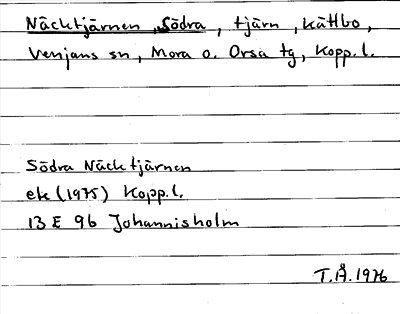 Näcktjärnen, Södra, tjärn, Kättbo,
Venjans sn, Mora o. Orsa tg, Kopp.l.
Södra Näcktjärnen
ek (1975) Kopp.l.
13 E 9b Johannisholm
T.Å. 1976